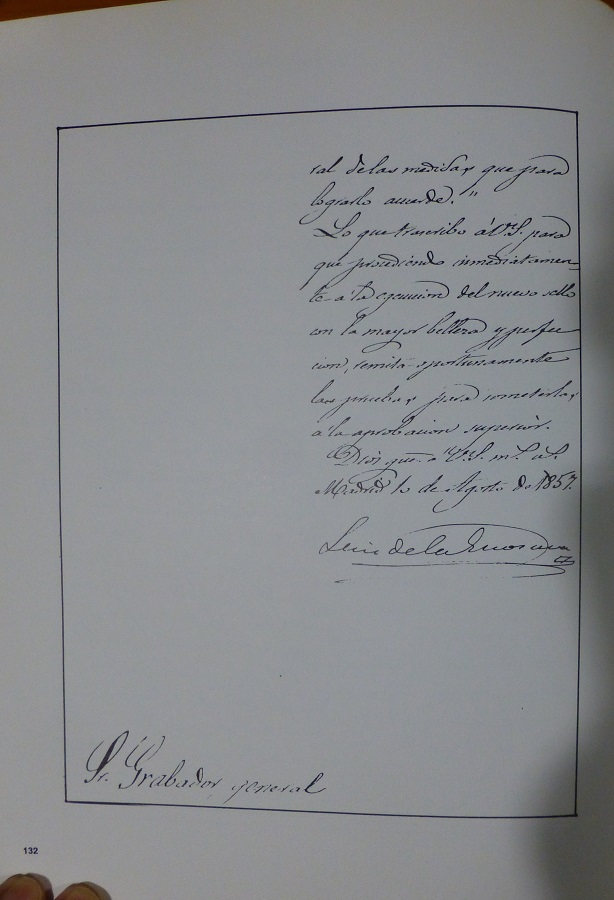 ral de las medidas que para
lograrlo acuerde."
Lo que trascribo á V.S. para
que procediendo inmediatamen-
te á la egecucion del nuevo sello
con la mayor belleza y perfec
cion, remita oportunamente
las pruebas para someterlas
á la aprobacion superior.
Dios gue. á V.S. ms. as.
Madrid 10 de Agosto de 1857.
Luis de la
Sr. Grabador general
132